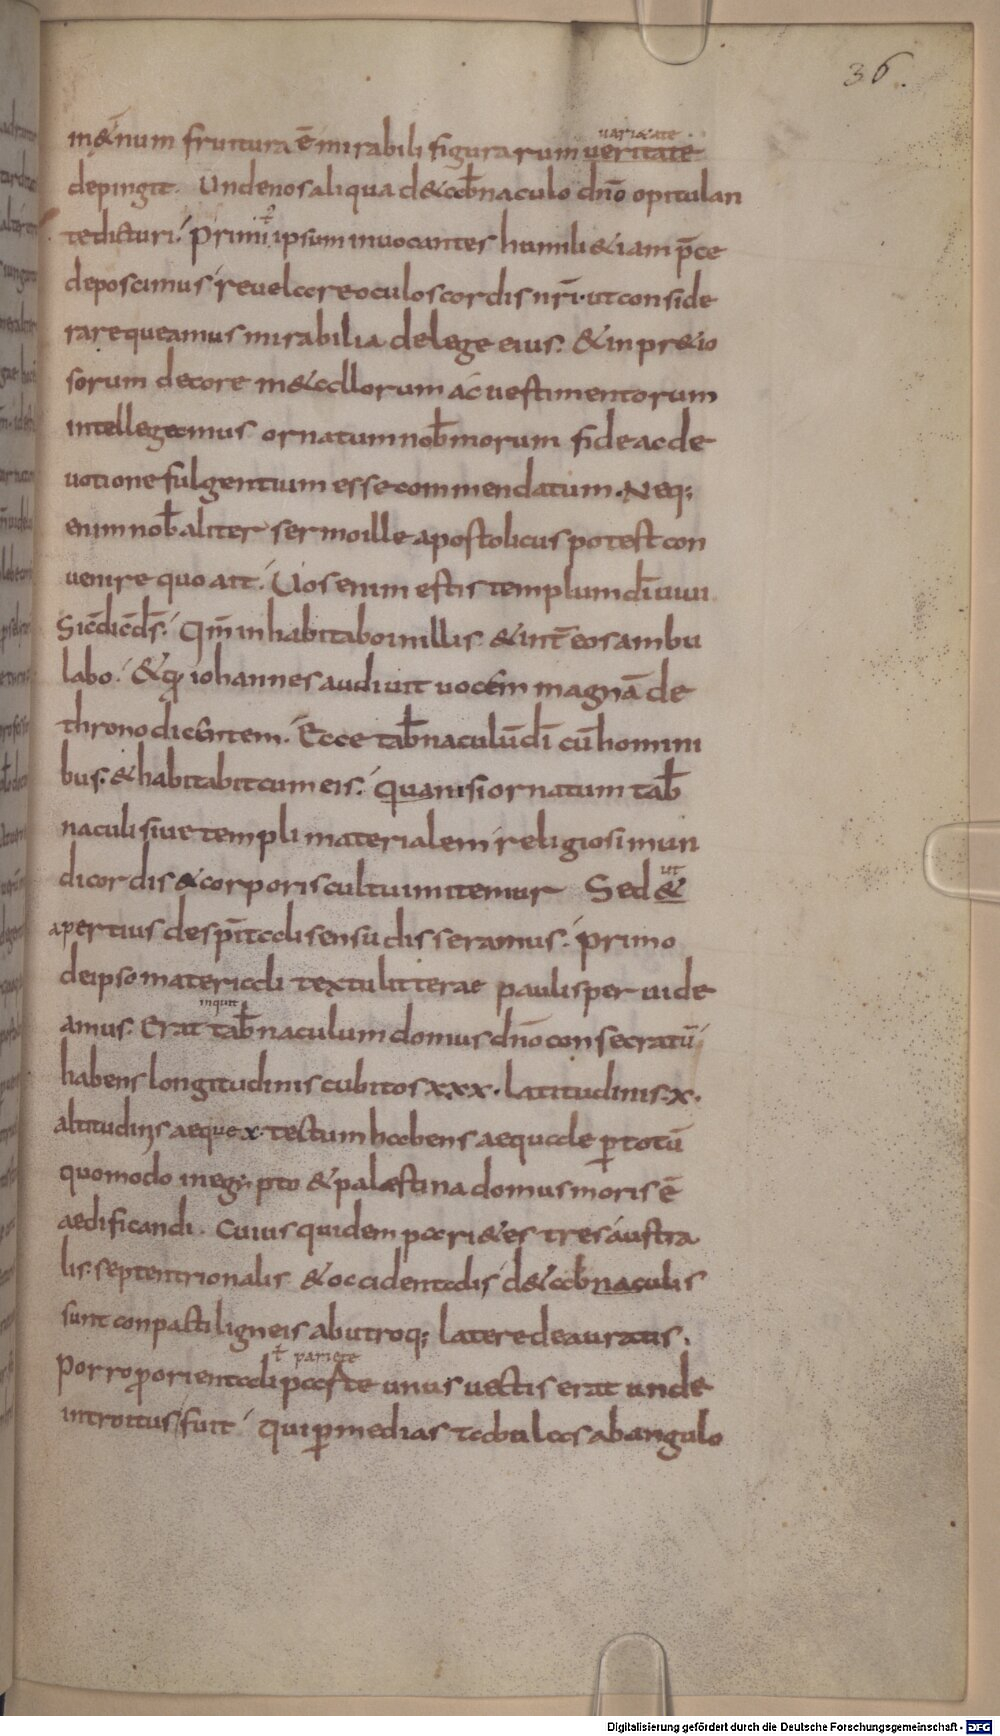 36.
in&ēnum fruitura ē mirabili figurarum veritate
uari&ate
depingit. Unde nos aliqua d&abnaculo dnō opitulan
te dicturi. Primū ipsum invocantes humili &iam p̄ce
deposcimus revelare oculos cordis nr̄i. ut conside
rare queamus mirabilia de lege eius. &in pr&io
sorum decore m&allorum ac vestimentorum
intellegamus ornatum nob̄ morum fide ac de
votione fulgentium esse commendatum. Neq;
enim nob̄ aliter sermo ille apostolicus potest con
venire quo ait. Vos enim estis templum dī vivi
Sic̄ dic̄ ds̄. Qm̄ inhabitabo in illis &int̄ eos ambu
labo. & ꝗ iohannes audivit vocem magnā de
throno dicentem. Ecce tab̄naculū dī cū homini
bus. &habitabit cum eis. Quam si ornatum tab̄
naculi sive templi materialem religiosi mun
di cordis &corporis cultu imitemur Sed &
ut
apertius de sp̄itali sensu disseramus. primo
de ipso materiali textu litterae paulisper vide
amus. Erat tab̄naculum domus dnō consecratū
inquit
habens longitudinis cubitos xxx. latitudinis. x.
altitudinis aeque x. tectum habens aequale ꝑ totū
quomodo in egypto &palæstina domus moris ē
aedificandi. Cuius quidem pari&es tres austra
lis. septentrionalis &occidentalis d&abnaculis
sunt conpacti ligneis ab utroq; latere deauratis.
Porro ꝓ orientali paste unus vectis erat unde
ł pariete
introitus fuit Qui ꝑ medias tabulas ab angulo
Digitalisierung gefördert durch die Deutsche Forschungsgemeinschaft - DFG